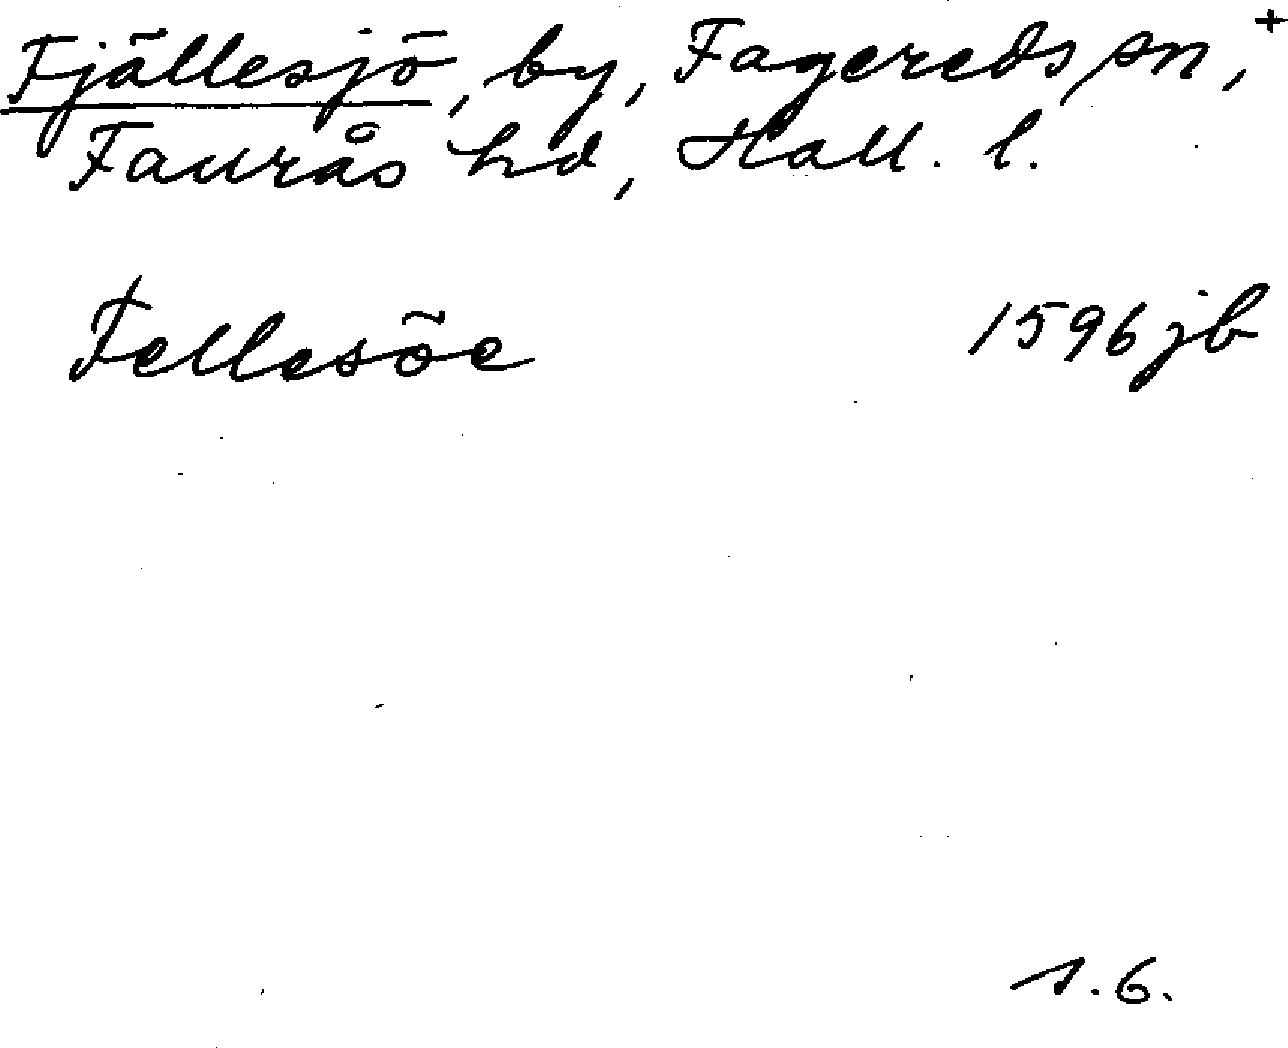 Fjällesjö, by, Fagereds sn, +
Faurås hd, Hall. l.
Fellesöe 1596 jb
s. 6.